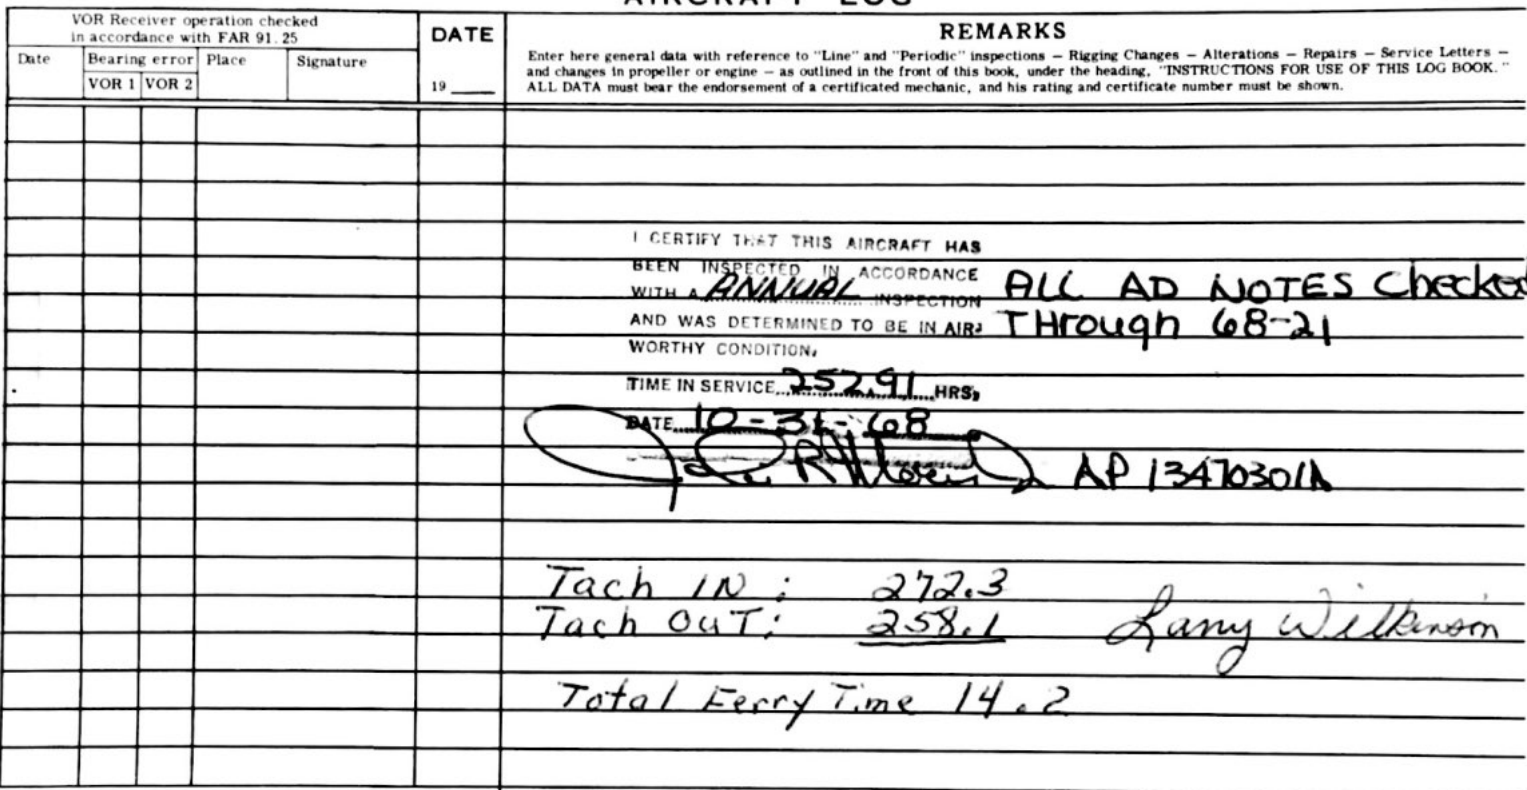 AIRCRAFT LOG
VOR Receiver operation checked
in accordance with FAR 91.25
Date
Bearing error
VOR 1 VOR 2
Place
Signature
DATE
19
REMARKS
Enter here general data with reference to "Line" and "Periodic" inspections — Rigging Changes — Alterations — Repairs — Service Letters —
and changes in propeller or engine — as outlined in the front of this book, under the heading, "INSTRUCTIONS FOR USE OF THIS LOG BOOK."
ALL DATA must bear the endorsement of a certificated mechanic, and his rating and certificate number must be shown.
I CERTIFY THAT THIS AIRCRAFT HAS
BEEN INSPECTED IN ACCORDANCE
WITH A ANNUAL INSPECTION
AND WAS DETERMINED TO BE IN AIR-
WORTHY CONDITION.
TIME IN SERVICE 252.91 HRS.
DATE 10-31-68
ALL AD NOTES Checked
THrough 68-21
AP 1347030
Tach IN: 272.3
Tach OuT: 258.1
Larry Wilkinson
Total Ferry Time 14.2